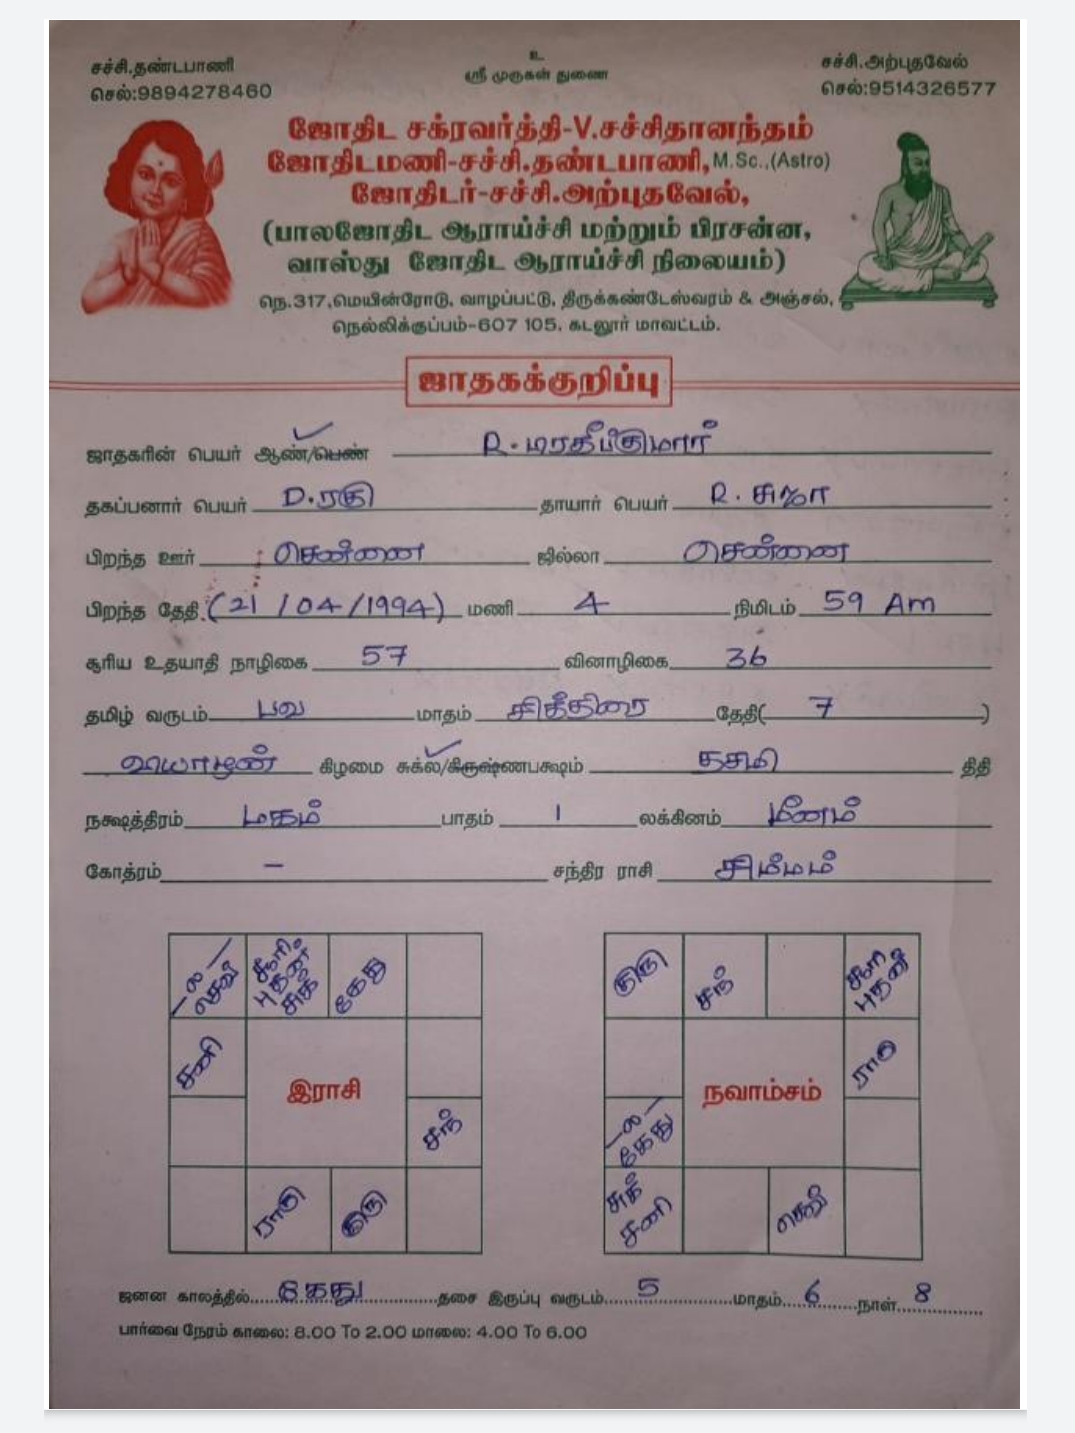 உ
ஸ்ரீ முருகன் துணை
சச்சி.தண்டபாணி
செல்:9894278460
சச்சி.அற்புதவேல்
செல்:9514326577
ஜோதிட சக்ரவர்த்தி-V.சச்சிதானந்தம்
ஜோதிடமணி-சச்சி.தண்டபாணி, M.Sc.,(Astro)
ஜோதிடர்-சச்சி.அற்புதவேல்,
(பாலஜோதிட ஆராய்ச்சி மற்றும் பிரசன்ன,
வாஸ்து ஜோதிட ஆராய்ச்சி நிலையம்)
நெ.317,மெயின்ரோடு, வாழப்பட்டு, திருக்கண்டேஸ்வரம் & அஞ்சல்,
நெல்லிக்குப்பம்-607 105. கடலூர் மாவட்டம்.
ஜாதகக்குறிப்பு
ஜாதகரின் பெயர் ஆண்/பெண் R. பிரதீப்குமார்
தகப்பனார் பெயர் D.ரகு தாயார் பெயர் R. சுஜா
பிறந்த ஊர் சென்னை ஜில்லா சென்னை
பிறந்த தேதி (21/04/1994) மணி 4 நிமிடம் 59 Am
சூரிய உதயாதி நாழிகை 57 வினாழிகை 36
தமிழ் வருடம் பவ மாதம் சித்திரை தேதி( 7 )
வியாழன் கிழமை சுக்ல/கிருஷ்ணபக்ஷம் தசமி திதி
நக்ஷத்திரம் மகம் பாதம் 1 லக்கினம் மீனம்
கோத்ரம் – சந்திர ராசி சிம்மம்
ல செவ்
சூரி புதன் சுக்
கேது
சனி
இராசி
சந்
ராகு
குரு
குரு
சந்
சூரி புதன்
ராகு
நவாம்சம்
ல கேது
சுக் சனி
செவ்
ஜனன காலத்தில் கேது தசை இருப்பு வருடம் 5 மாதம் 6 நாள் 8
பார்வை நேரம் காலை: 8.00 To 2.00 மாலை: 4.00 To 6.00